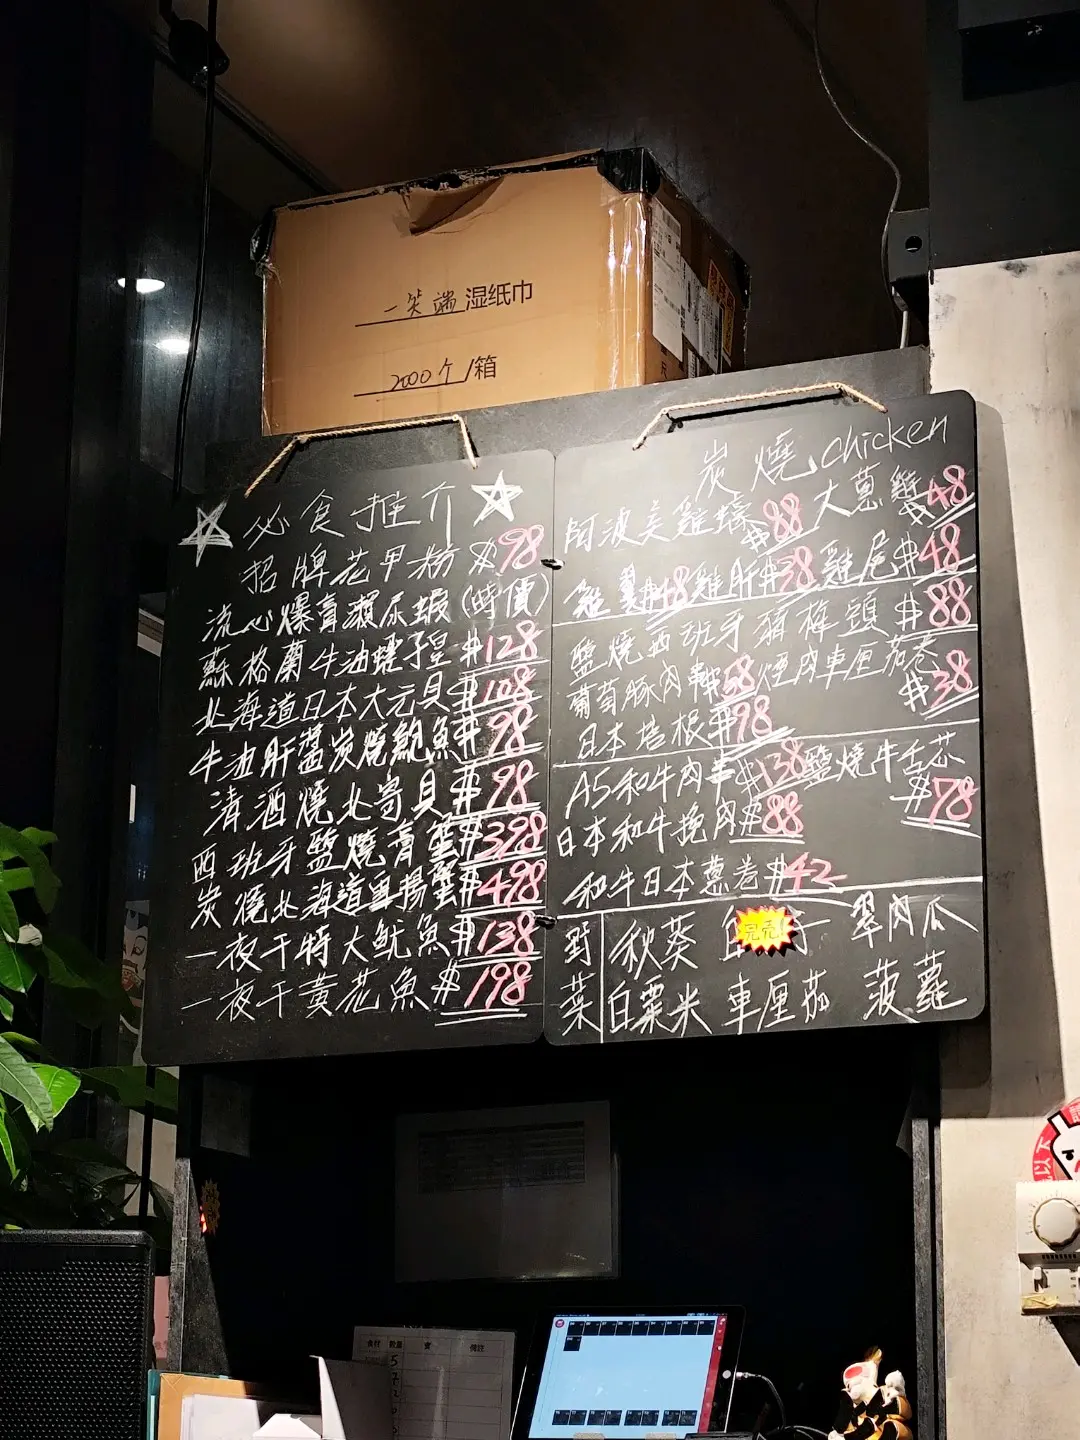 一笑端湿纸巾
2000个/箱
必食推介
招牌花甲粉 $98
流心爆膏瀨尿蝦(時價)
蘇格蘭牛油蟶子皇 $128
北海道日本大元貝 $108
牛油肝醬炭燒鮑魚 $98
清酒燒北寄貝 $98
西班牙鹽燒膏蟹 $398
炭燒北海道直揚蟹 $498
一夜干特大魷魚 $138
一夜干黃花魚 $198
炭燒chicken
阿波美雞 $88 大蔥雞 $48
雞翼 $48 雞肝 $38 雞尾 $48
鹽燒西班牙豬梅頭 $88
葡萄豚肉串 $58 煙肉車厘茄卷 $38
日本塔根 $98
A5和牛肉串 $138 鹽燒牛舌芯 $78
日本和牛挽肉 $88
和牛日本蔥卷 $42
野菜
秋葵 翠肉瓜
白粟米 車厘茄 菠蘿